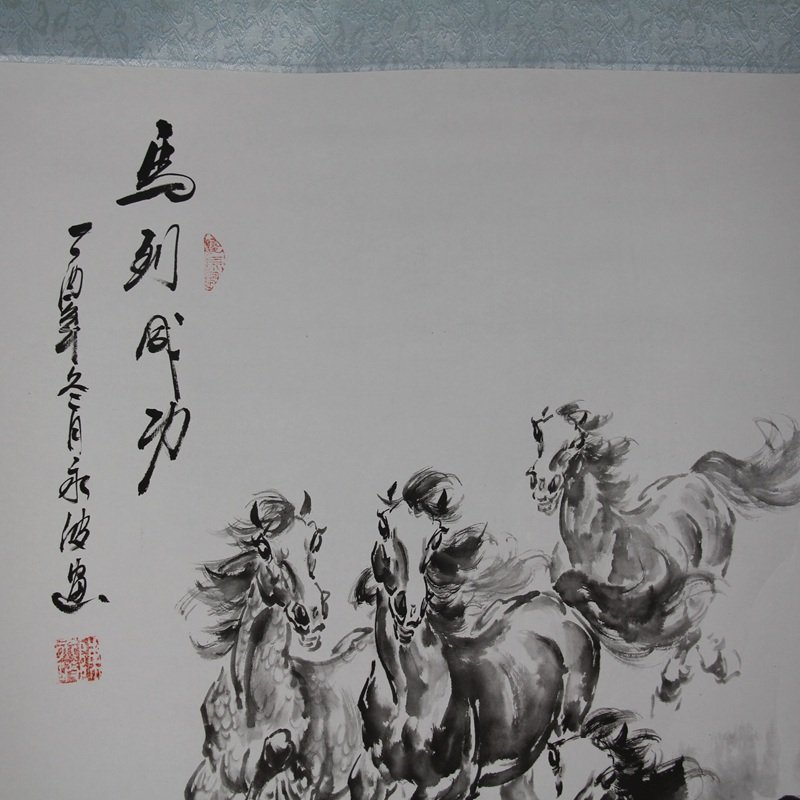 馬列成功
丁酉年冬月永波畫